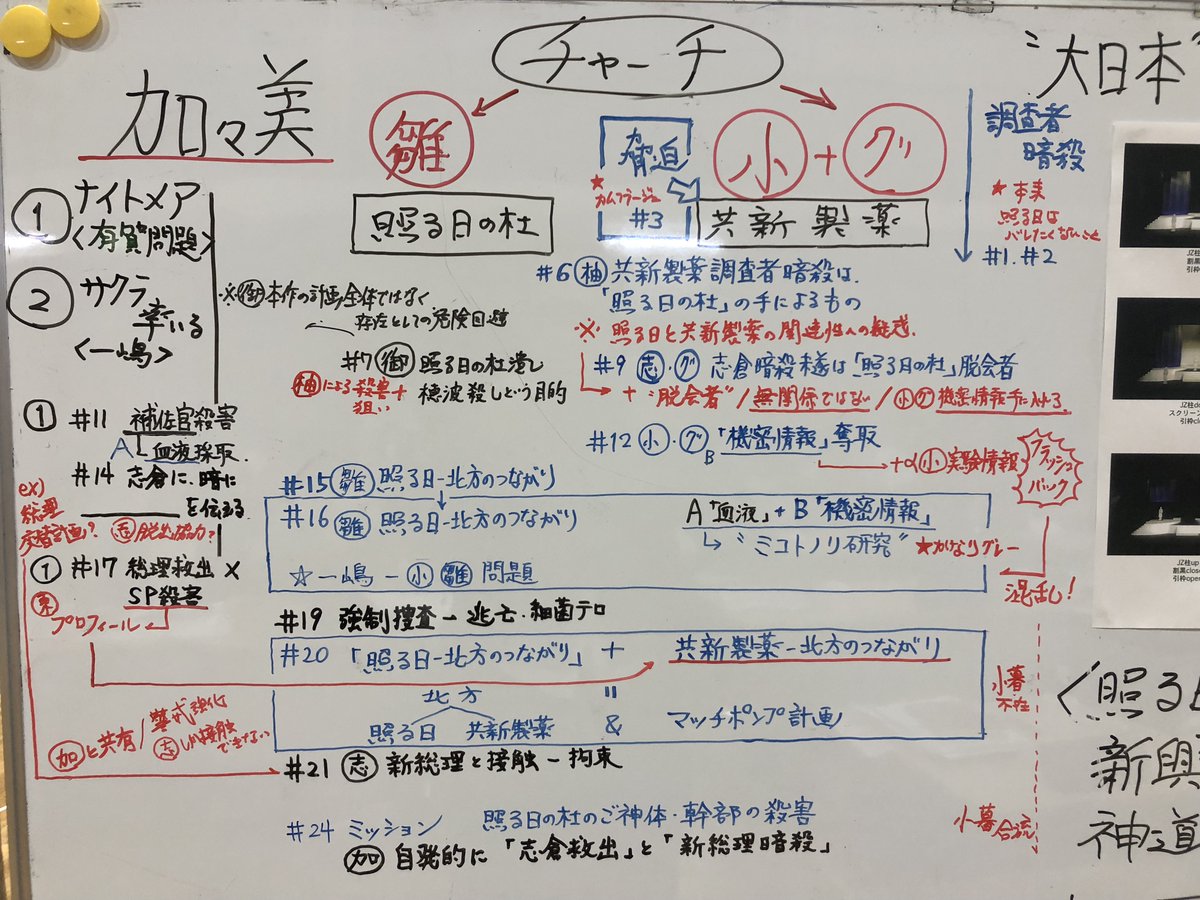 チャーチ
"大日本"
加々美
雛
脅迫
★カムフラージュ
#3
小+グ
調査者
暗殺
★本来
照る日は
バレたくないこと
#1.#2
照る日の杜
共新製薬
① ナイトメア
〈有賀問題〉
② サクラ
率いる
〈一嶋〉
#6 柚 共新製薬調査者暗殺は、
「照る日の杜」の手によるもの
※ 照る日と共新製薬の関連性への疑惑
※御 本作の計画全体ではなく
存在としての危険回避
#7 御 照る日の杜潰し
穂波殺しという目的
柚による殺害+
狙い
#9 志・グ 志倉暗殺未遂は「照る日の杜」脱会者
+"脱会者"/無関係ではない/小グ 機密情報手に入れる
① #11 補佐官殺害
A 血液採取
#12 小・グ「機密情報」奪取
B
+α 小 実験情報
フラッシュ
バック
#14 志倉に、暗に
を伝える
ex)
総理
交替計画?
志 脱出協力?
#15 雛 照る日-北方のつながり
#16 雛 照る日-北方のつながり
A「血液」+B「機密情報」
"ミコトノリ研究" ★かなりグレー
☆一嶋-小雛問題
混乱!
① #17 総理救出×
SP殺害
プロフィール
#19 強制捜査-逃亡・細菌テロ
#20 「照る日-北方のつながり」+ 共新製薬-北方のつながり
北方 =
照る日 共新製薬 & マッチポンプ計画
小暮
不在
加 と共有/
志しか接触
できない
#21 志 新総理と接触-拘束
#24 ミッション 照る日の杜のご神体・幹部の殺害
加 自発的に「志倉救出」と「新総理暗殺」
小暮
合流
〈照る日
新興
神道
JZ柱
割黒
引枠
JZ柱do
スクリーン
引枠clo
JZ柱up
割黒close
引枠open